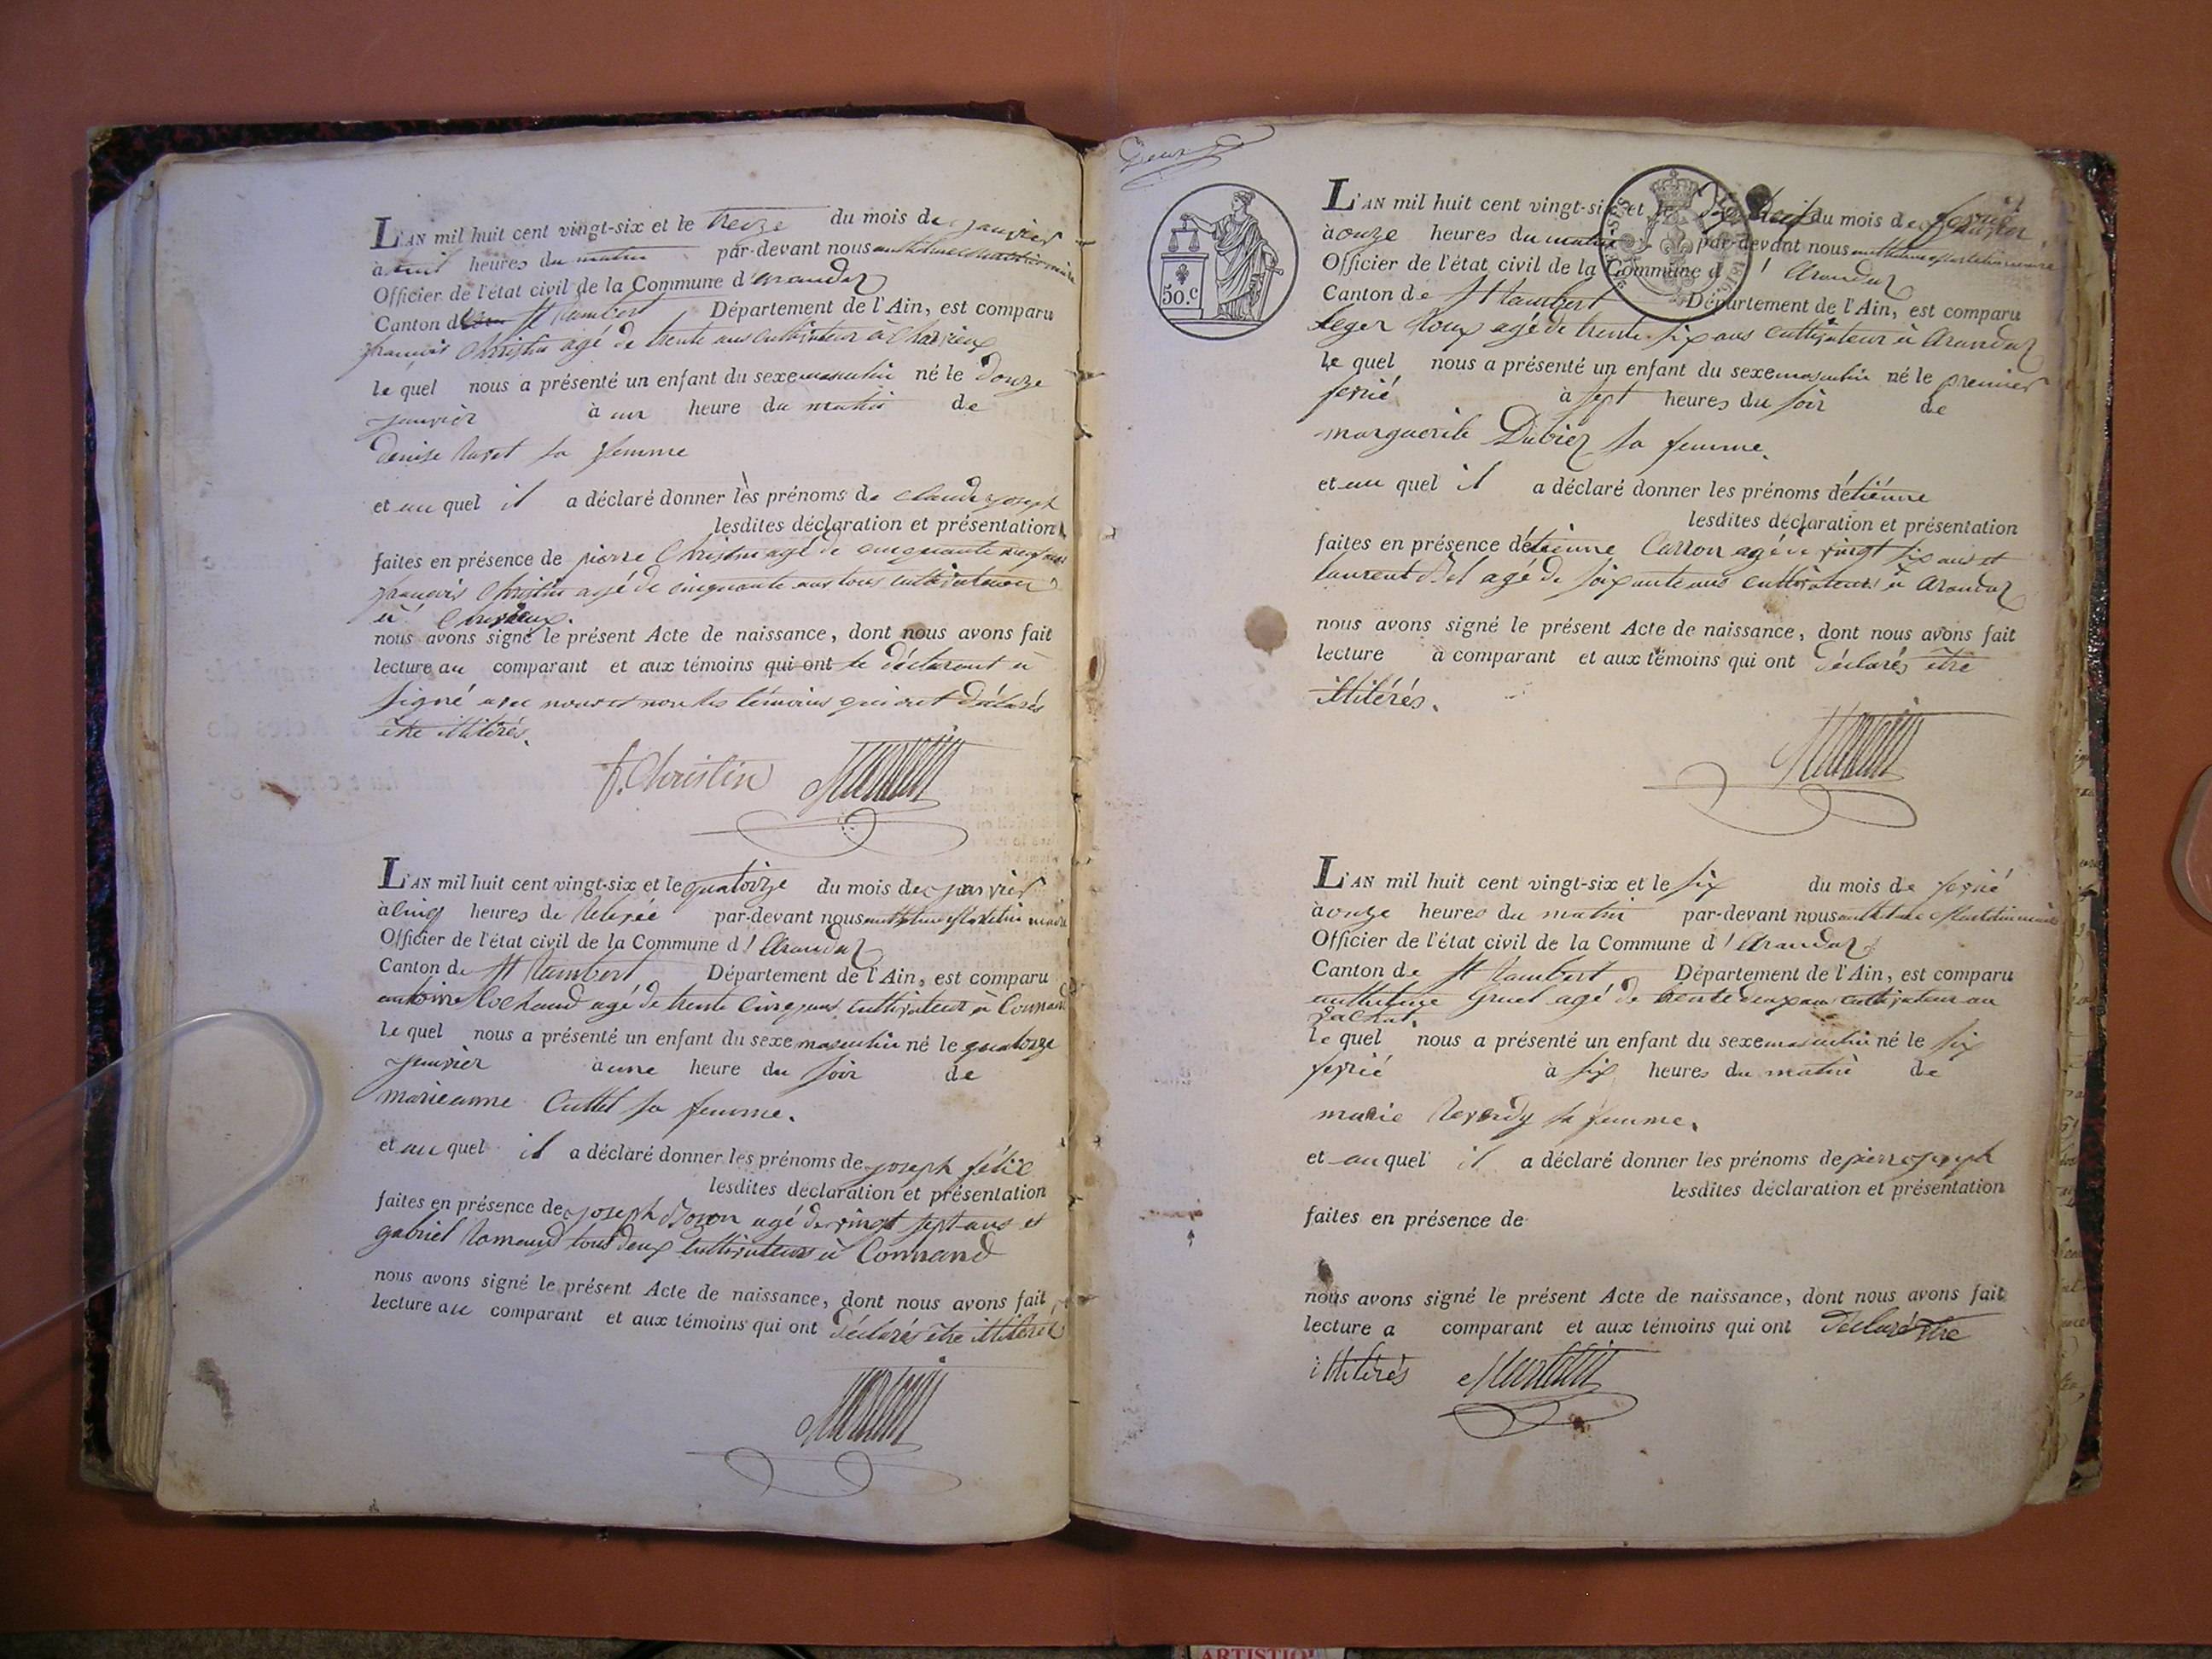 L'AN mil huit cent vingt-six et le treize du mois de janvier
à huit heures du matin par-devant nous
Officier de l'état civil de la Commune d'arandaz
Canton de St Rambert Département de l'Ain, est comparu
françois Christin agé de trente ans cultivateur à
le quel nous a présenté un enfant du sexe masculin né le douze
janvier à un heure du matin de
denise sa femme
et au quel il a déclaré donner les prénoms de claude joseph
lesdites déclaration et présentation
faites en présence de pierre Christin agé de cinquante neuf ans
françois Christin agé de cinquante ans tous cultivateurs
à
nous avons signé le présent Acte de naissance, dont nous avons fait
lecture au comparant et aux témoins qui ont le déclarant à
signé avec nous et non les témoins qui ont déclarés
être illitérés.
f. Christin
L'AN mil huit cent vingt-six et le quatorze du mois de janvier
à cinq heures de relevée par-devant nous anthelme Martelin maire
Officier de l'état civil de la Commune d'Arandaz
Canton de St Rambert Département de l'Ain, est comparu
antoine agé de trente cinq ans cultivateur à Connand
le quel nous a présenté un enfant du sexe masculin né le quatorze
janvier à une heure du soir de
marieanne Cuttel sa femme.
et au quel il a déclaré donner les prénoms de joseph félix
lesdites déclaration et présentation
faites en présence de joseph agé de vingt sept ans et
gabriel tous deux cultivateurs à Connand
nous avons signé le présent Acte de naissance, dont nous avons fait
lecture au comparant et aux témoins qui ont déclarés être illitérés
Deux
50.c
L'AN mil huit cent vingt-six et le du mois de fevrié
à onze heures du matin par-devant nous anthelme Martelin maire
Officier de l'état civil de la Commune d'Arandaz
Canton de St Rambert Département de l'Ain, est comparu
leger Roux agé de trente six ans cultivateur à Arandaz
le quel nous a présenté un enfant du sexe masculin né le premier
fevrié à sept heures du soir de
marguerite Dubiez sa femme.
et au quel il a déclaré donner les prénoms d'étiénne
lesdites déclaration et présentation
faites en présence d'étienne Carron agé de vingt six ans et
laurent agé de soixante ans cultivateurs à Arandaz
nous avons signé le présent Acte de naissance, dont nous avons fait
lecture à comparant et aux témoins qui ont déclarés être
illitérés.
L'AN mil huit cent vingt-six et le six du mois de fevrié
à onze heures du matin par-devant nous anthelme Martelin maire
Officier de l'état civil de la Commune d'Arandaz
Canton de St Rambert Département de l'Ain, est comparu
anthelme Gruel agé de trente deux ans cultivateur au
le quel nous a présenté un enfant du sexe masculin né le six
fevrié à six heures du matin de
marie Reverdy sa femme.
et au quel il a déclaré donner les prénoms de pierre joseph
lesdites déclaration et présentation
faites en présence de
nous avons signé le présent Acte de naissance, dont nous avons fait
lecture a comparant et aux témoins qui ont déclaré être
illitérés Martelin